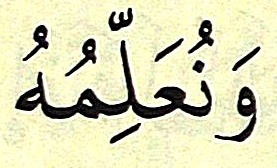 وَنُعَلِّمُهُ